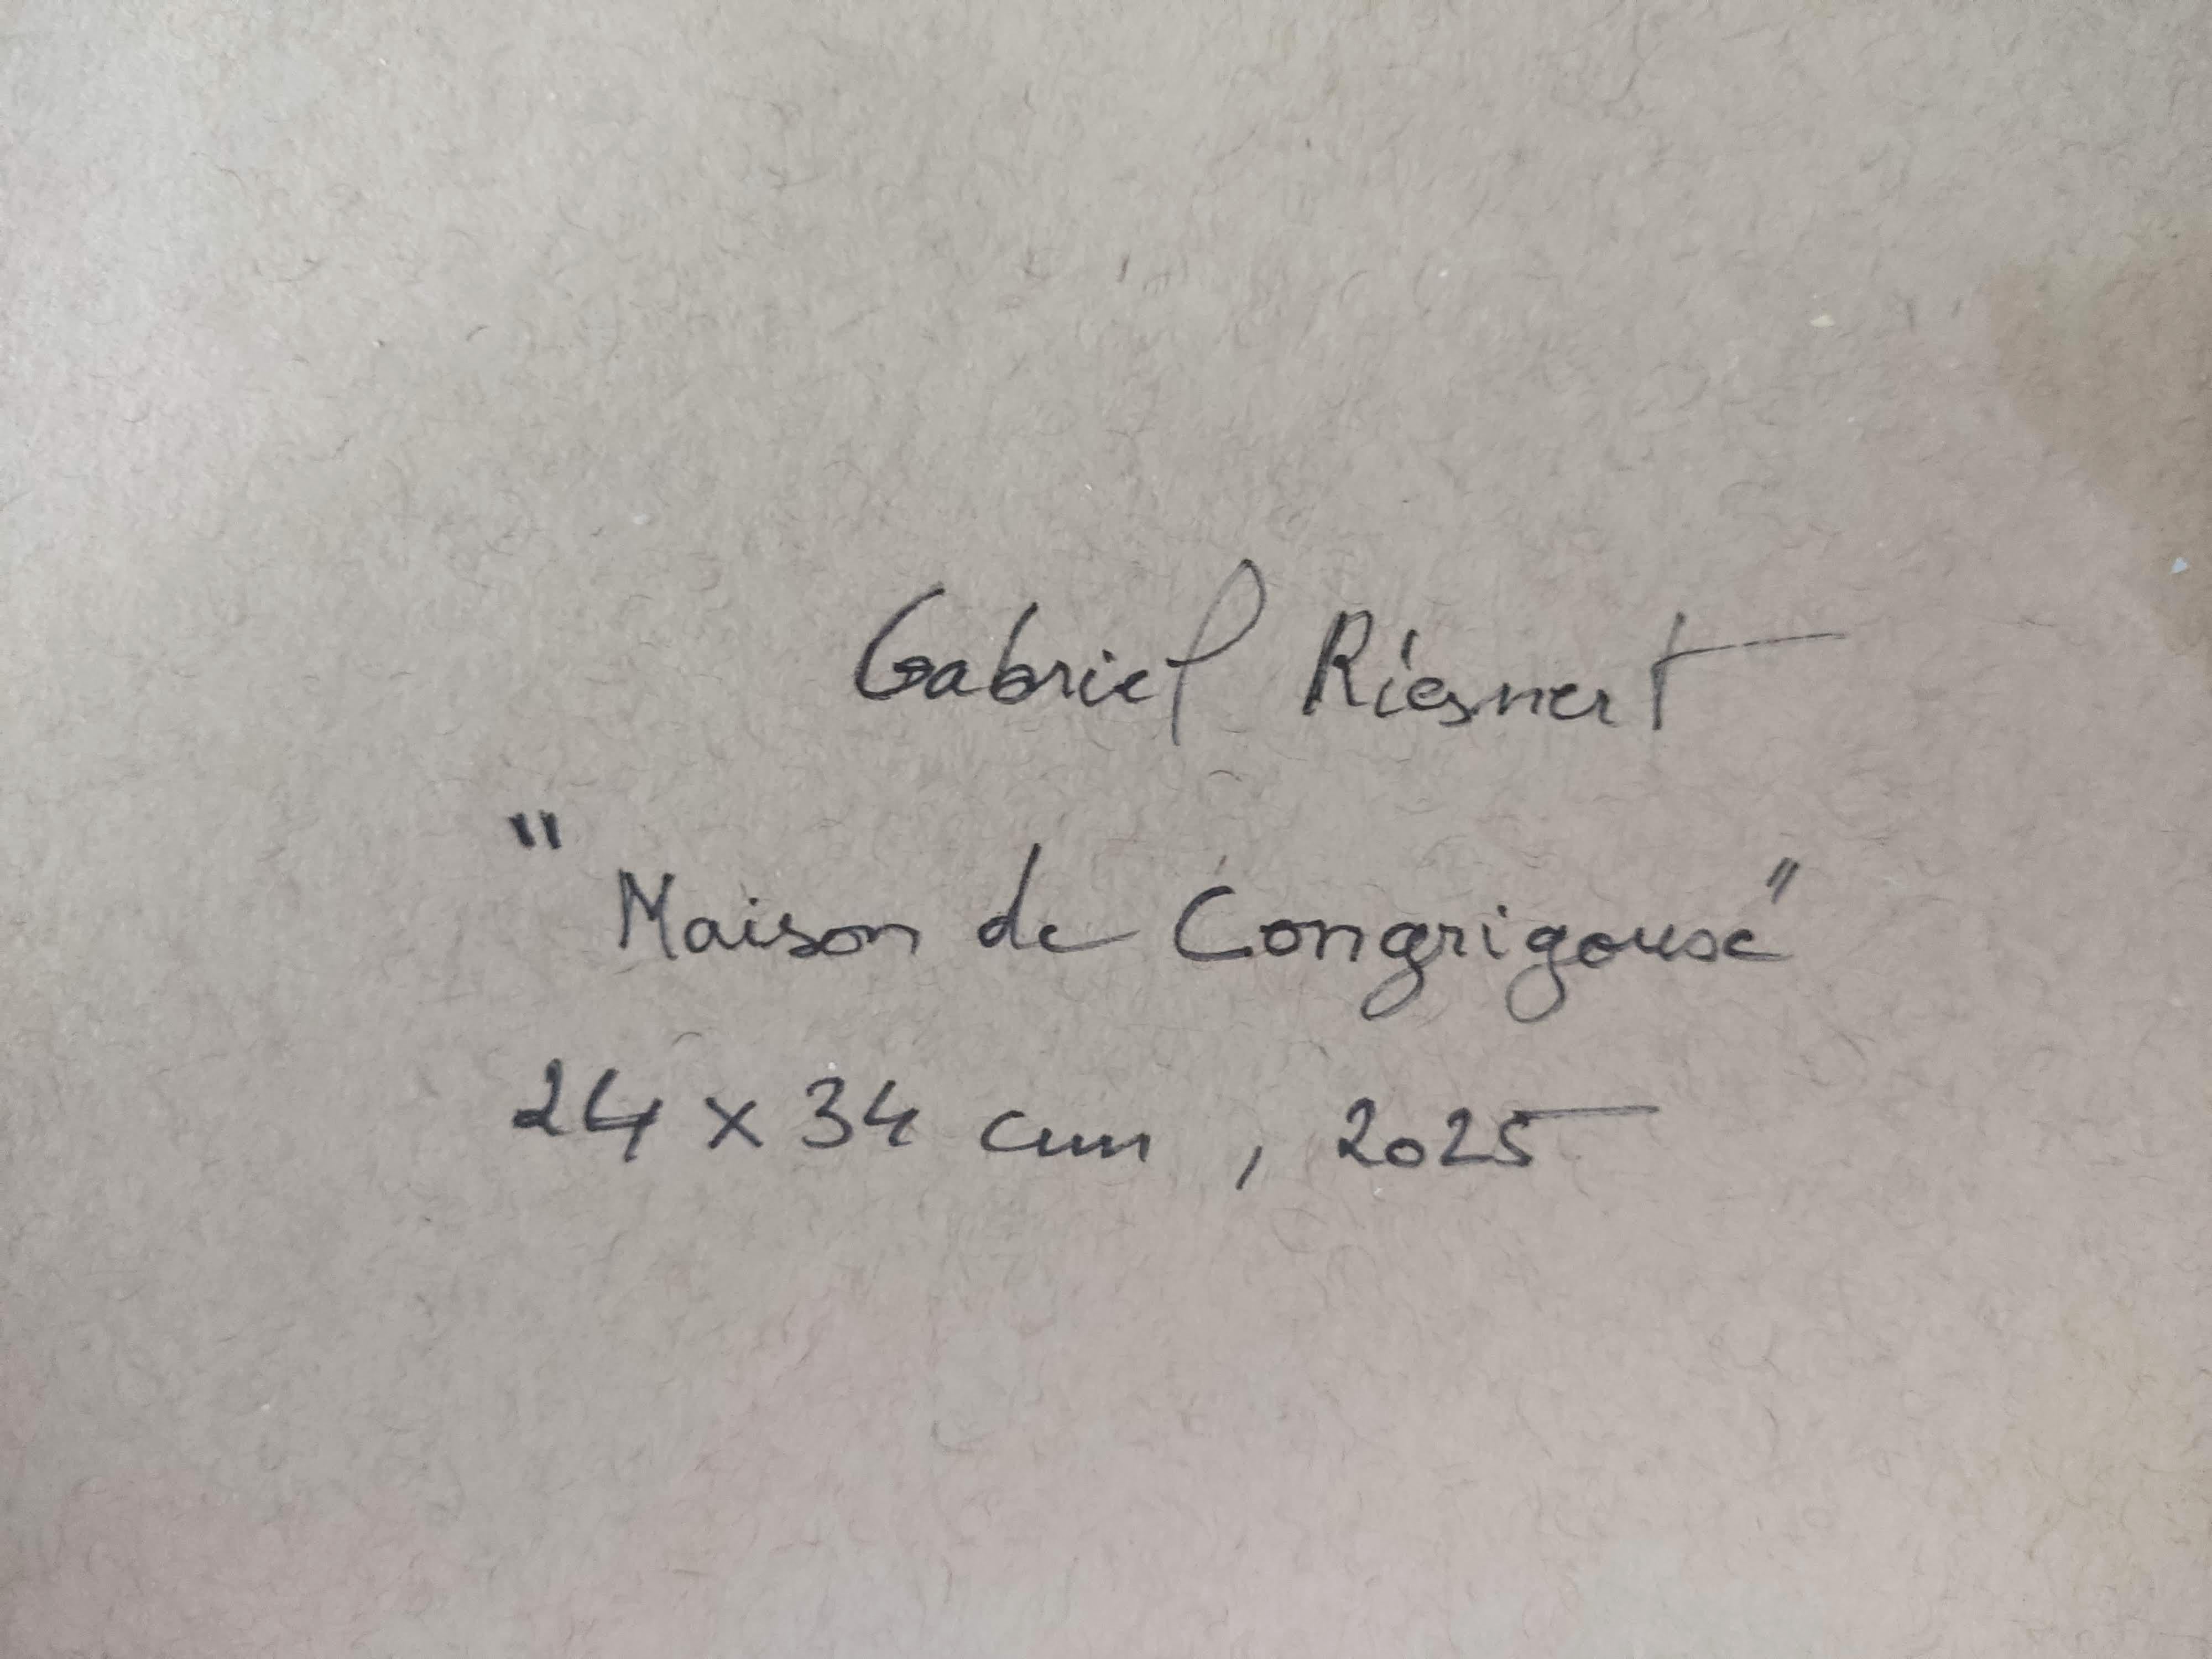 Gabriel Riesnert
"Maison de Congrigouse"
24 x 34 cm, 2025